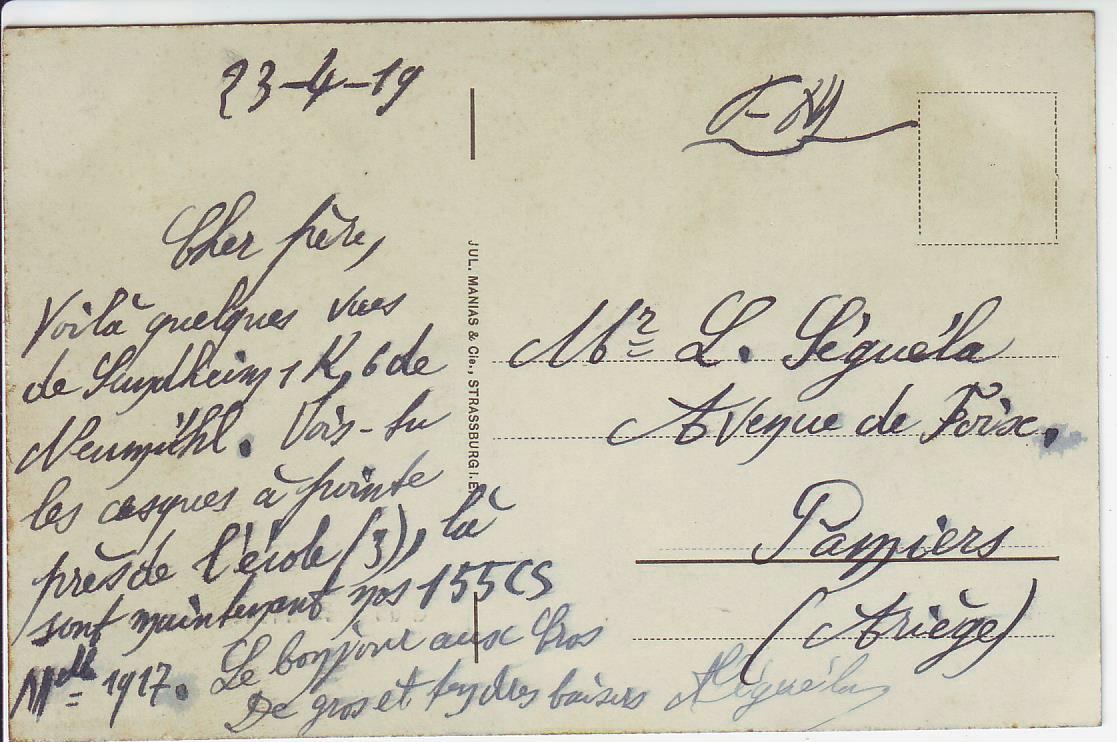 23-4-19
Cher père,
Voilà quelques vues
de Sundheim, K, 6 de
Neumühl. Vois-tu
les casques à pointe
près de l'école (3), là
sont maintenant nos 155CS
Mdle 1917. Le bonjour aux Cros
De gros et tendres baisers Séguéla
JUL. MANIAS & Cie., STRASSBURG I. E.
F-M
Mr L. Séguéla
Avenue de Foix.
Pamiers
(Ariège)